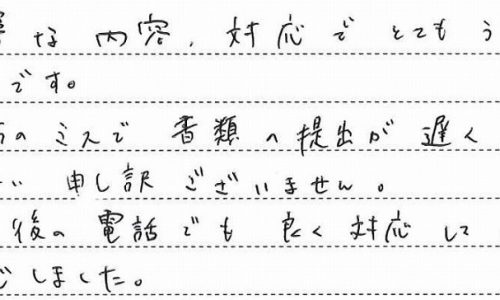 な内容、対応でとてもう
です。
のミスで書類の提出が遅く
い申し訳ございません。
後の電話でも良く対応して
しました。